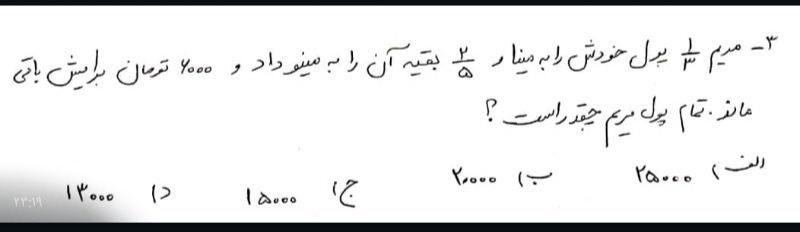 ۳- مریم ۱/۳ پول خودش را به مینا و ۲/۵ بقیه آن را به مینو داد و ۶۰۰۰ تومان برایش باقی
ماند. تمام پول مریم چقدر است؟
الف) ۲۵۰۰۰ ب) ۲۰۰۰۰ ج) ۱۵۰۰۰ د) ۱۳۰۰۰
۲۳:۱۹